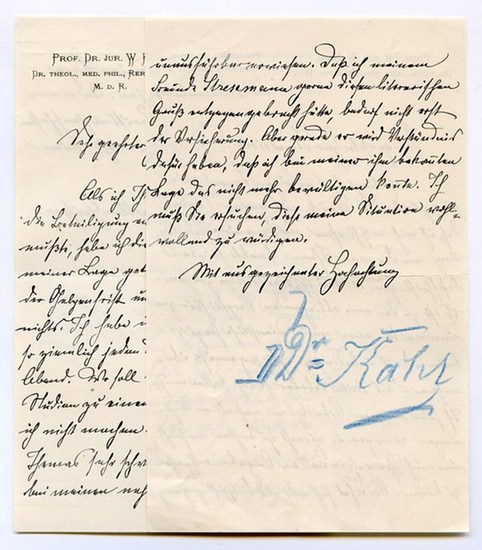 PROF. DR. JUR. W
DR. THEOL., MED. PHIL., RER
M. D. R.
Sehr geehrter
Als ich Ih
die Beteiligung
mußte, habe ich die
meiner Lage
der
nichts. Ich habe
so ziemlich jedem
lebend. Wo soll
Studien zu einem
ich nicht machen.
Themas sehr schw
bei meinen
erwiesen. Daß ich meinem
Freunde Stresemann gerne diesen literarischen
Gruß entgegengebracht hätte, bedarf nicht erst
der Versicherung. Aber gerade er wird Verständnis
dafür haben, daß ich bei meiner ihm bekannten
Lage das nicht mehr bewältigen konnte. Ich
muß Sie ersuchen, diese meine Situation wohl=
wollend zu würdigen.
Mit ausgezeichneter Hochachtung
DDr Kahl